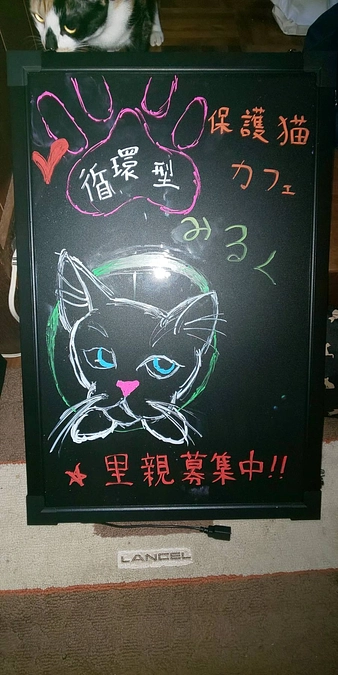 循環型
保護猫
カフェ
みるく
★里親募集中!!
LANCEL